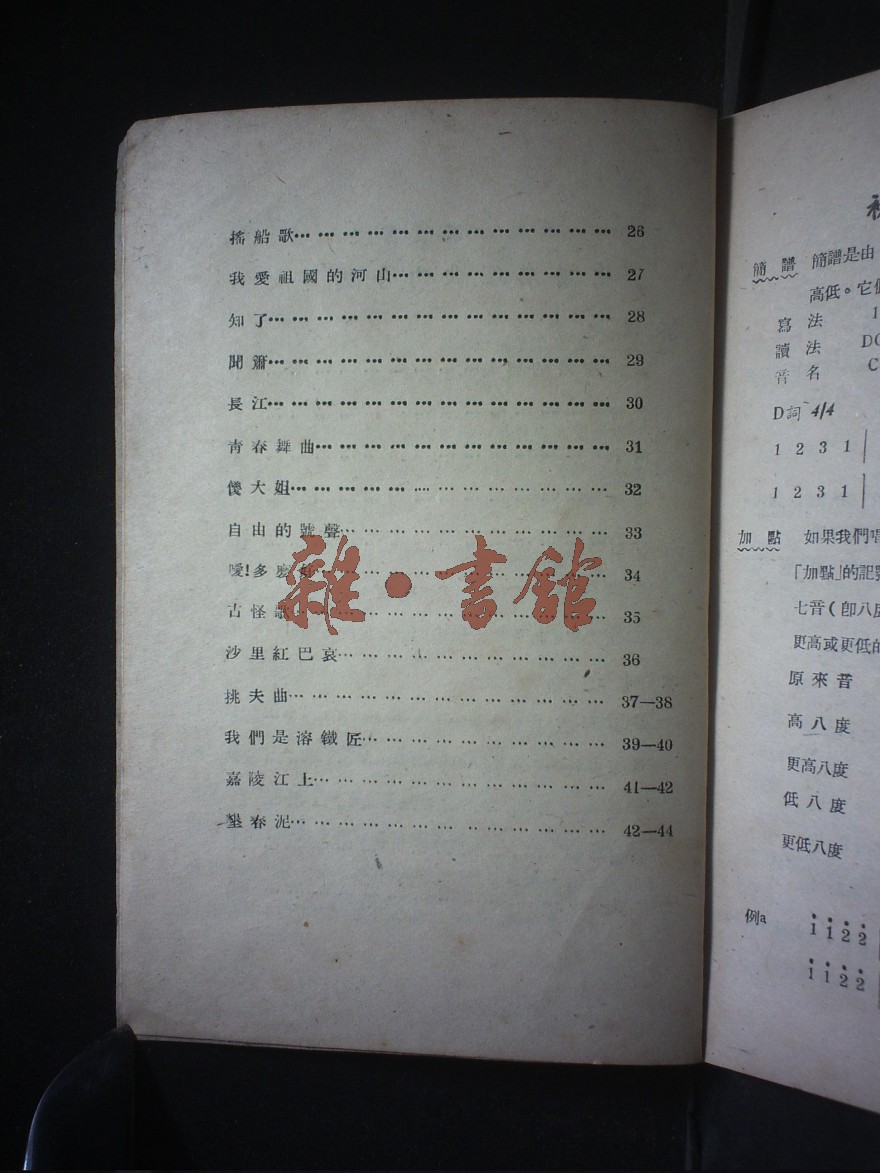 搖船歌… … … … … … … … … … … … … 26
我愛祖國的河山… … … … … … … … … 27
知了… … … … … … … … … … … … … … 28
聞簫… … … … … … … … … … … … … … 29
長江… … … … … … … … … … … … … … 30
青春舞曲… … … … … … … … … … … … 31
傻大姐… … … … … … … … … … … … … 32
自由的號聲… … … … … … … … … … … 33
噯!多麼好… … … … … … … … … … … 34
古怪歌… … … … … … … … … … … … … 35
沙里紅巴哀… … … … … … … … … … … 36
挑夫曲… … … … … … … … … … … … … 37—38
我們是溶鐵匠… … … … … … … … … … 39—40
嘉陵江上… … … … … … … … … … … … 41—42
墾春泥… … … … … … … … … … … … … 42—44
雜·書館
簡譜 簡譜是由
高低。它
寫法 1
讀法 DO
音名 C
D詞 4/4
1 2 3 1
1 2 3 1
加點 如果我們唱
「加點」的記號
七音(卽八度
更高或更低的
原來音
高八度
更高八度
低八度
更低八度
例a 1̇ 1̇ 2̇ 2̇
1̇ 1̇ 2̇ 2̇